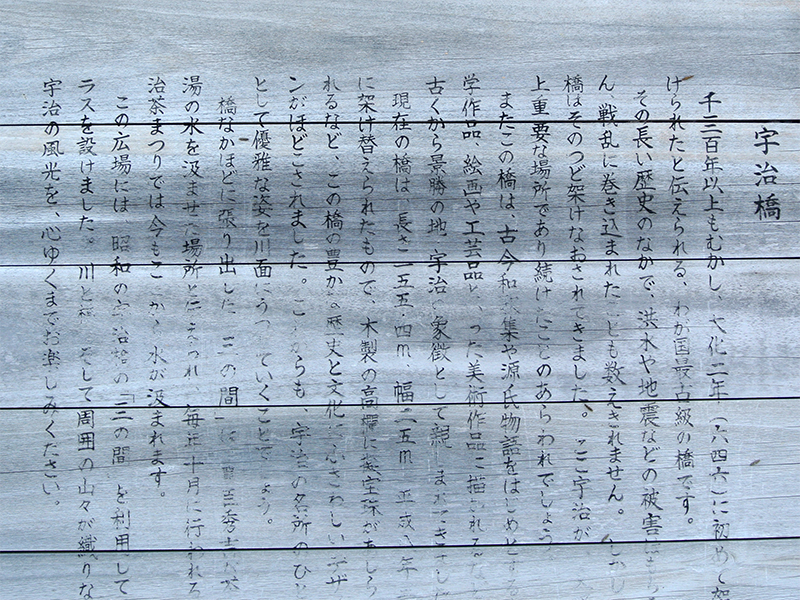 宇治橋
千三百年以上もむかし、大化二年(六四六)に初めて架
けられたと伝えられる、わが国最古級の橋です。
その長い歴史のなかで、洪水や地震などの被害は
ん、戦乱に巻き込まれたことも数えきれません。しかし
橋はそのつど架けなおされてきました。ここ宇治が
上重要な場所であり続けたことのあらわれでしょう
またこの橋は、古今和歌集や源氏物語をはじめとする
学作品、絵画や工芸品といった美術作品に描かれるなど
古くから景勝の地 宇治 象徴として親しまれてきました
現在の橋は、長さ一五五・四m、幅二五m 平成 年
に架け替えられたもので、木製の高欄に擬宝珠があしら
れるなど、この橋の豊かな歴史と文化にふさわしいデザ
ンがほどこされました。これからも、宇治の名所のひと
として優雅な姿を川面にうつしていくことでしょう。
橋なかほどに張り出した「三の間」は 豊臣秀吉が茶
湯の水を汲ませた場所と伝えられ、毎年十月に行われる
治茶まつりでは今もここから水が汲まれます。
この広場には、昭和の宇治橋の「三の間」を利用して
ラスを設けました。川と橋、そして周囲の山々が織りな
宇治の風光を、心ゆくまでお楽しみください。